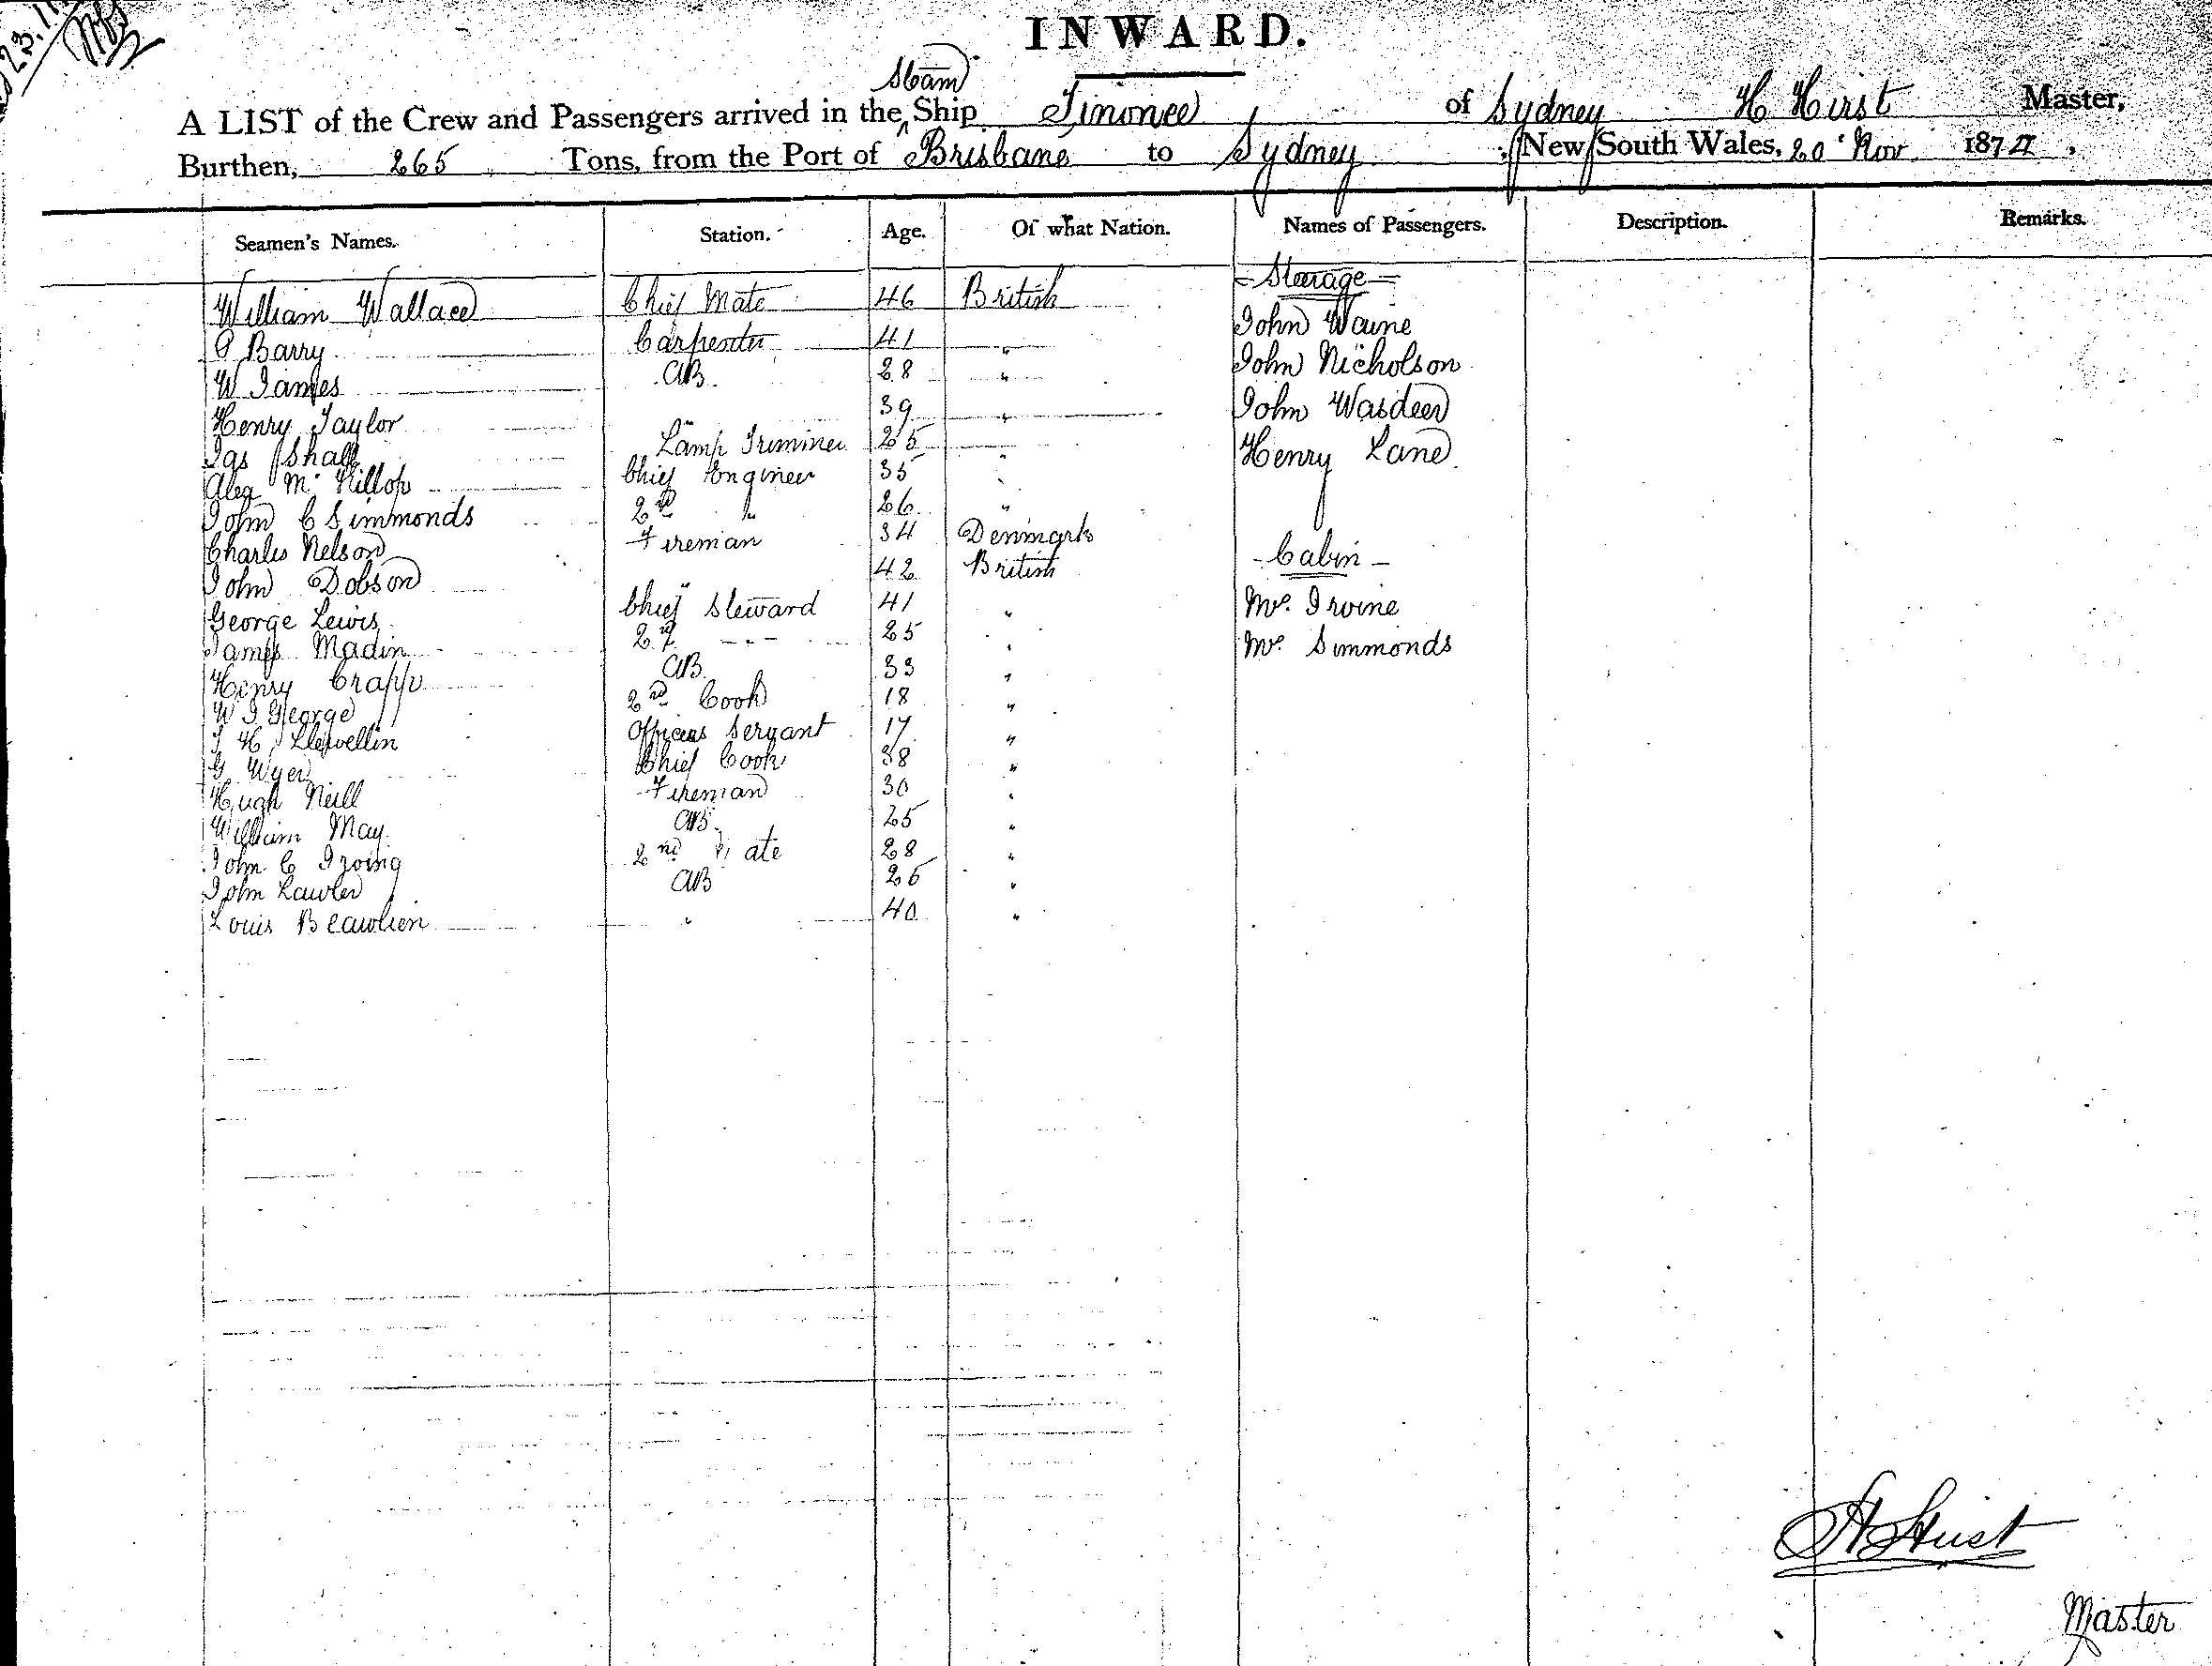 INWARD.
A LIST of the Crew and Passengers arrived in the Steam Ship Tinonee of Sydney H Hirst Master,
Burthen, 265 Tons, from the Port of Brisbane to Sydney, New South Wales, 20 Nov 187
Seamen's Names. Station. Age. Of what Nation. Names of Passengers. Description. Remarks.
William Wallace Chief Mate 46 British
Barry Carpenter 41 "
W James AB 28 "
Henry Taylor " 39 "
Jas Shall Lamp Trimmer 25 "
Alex McKillop Chief Engineer 35 "
John C Simmonds 2nd " 26 "
Charles Nelson Fireman 34 Denmark
John Dobson " 42 British
George Lewis Chief Steward 41 "
James Madin 2nd " 25 "
Henry Crapp AB 33 "
W J George 2nd Cook 18 "
H Llewellin Officers Servant 17 "
G Wyer Chief Cook 38 "
Hugh Neill Fireman 30 "
William May AB 25 "
John C Irving 2nd Mate 28 "
John Lawler AB 26 "
Louis " 40 "
- Steerage -
John Waine
John Nicholson
John Wasdeer
Henry Lane
- Cabin -
Mr. Irvine
Mr. Simmonds
H Hirst
Master